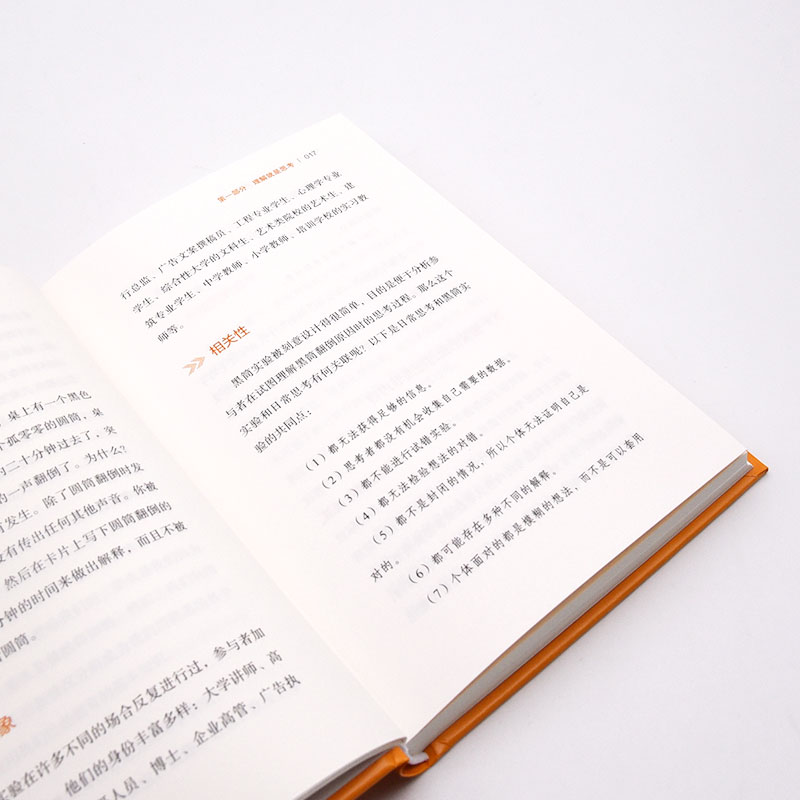 桌上有一个黑色
个孤零零的圆筒,桌
的二十分钟过去了,突
的一声翻倒了。为什么?
发生。除了圆筒翻倒时发
没有传出任何其他声音。你被
然后在卡片上写下圆筒翻倒的
分钟的时间来做出解释,而且不被
圆筒。
象
实验在许多不同的场合反复进行过,参与者加
他们的身份丰富多样:大学讲师、高
人员、博士、企业高管、广告执
第一部分 理解就是思考 | 017
行总监、广告文案撰稿员、工程专业学生、心理学专业
学生、综合性大学的文科生、艺术类院校的艺术生、建
筑专业学生、中学教师、小学教师、培训学校的实习教
师等。
相关性
黑筒实验被刻意设计得很简单,目的是便于分析参
与者在试图理解黑筒翻倒原因时的思考过程。那么这个
实验和日常思考有何关联呢?以下是日常思考和黑筒实
验的共同点:
(1)都无法获得足够的信息。
(2)思考者都没有机会收集自己需要的数据。
(3)都不能进行试错实验。
(4)都无法检验想法的对错。
(5)都不是封闭的情况,所以个体无法证明自己是
对的。
(6)都可能存在多种不同的解释。
(7)个体面对的都是模糊的想法,而不是可以套用